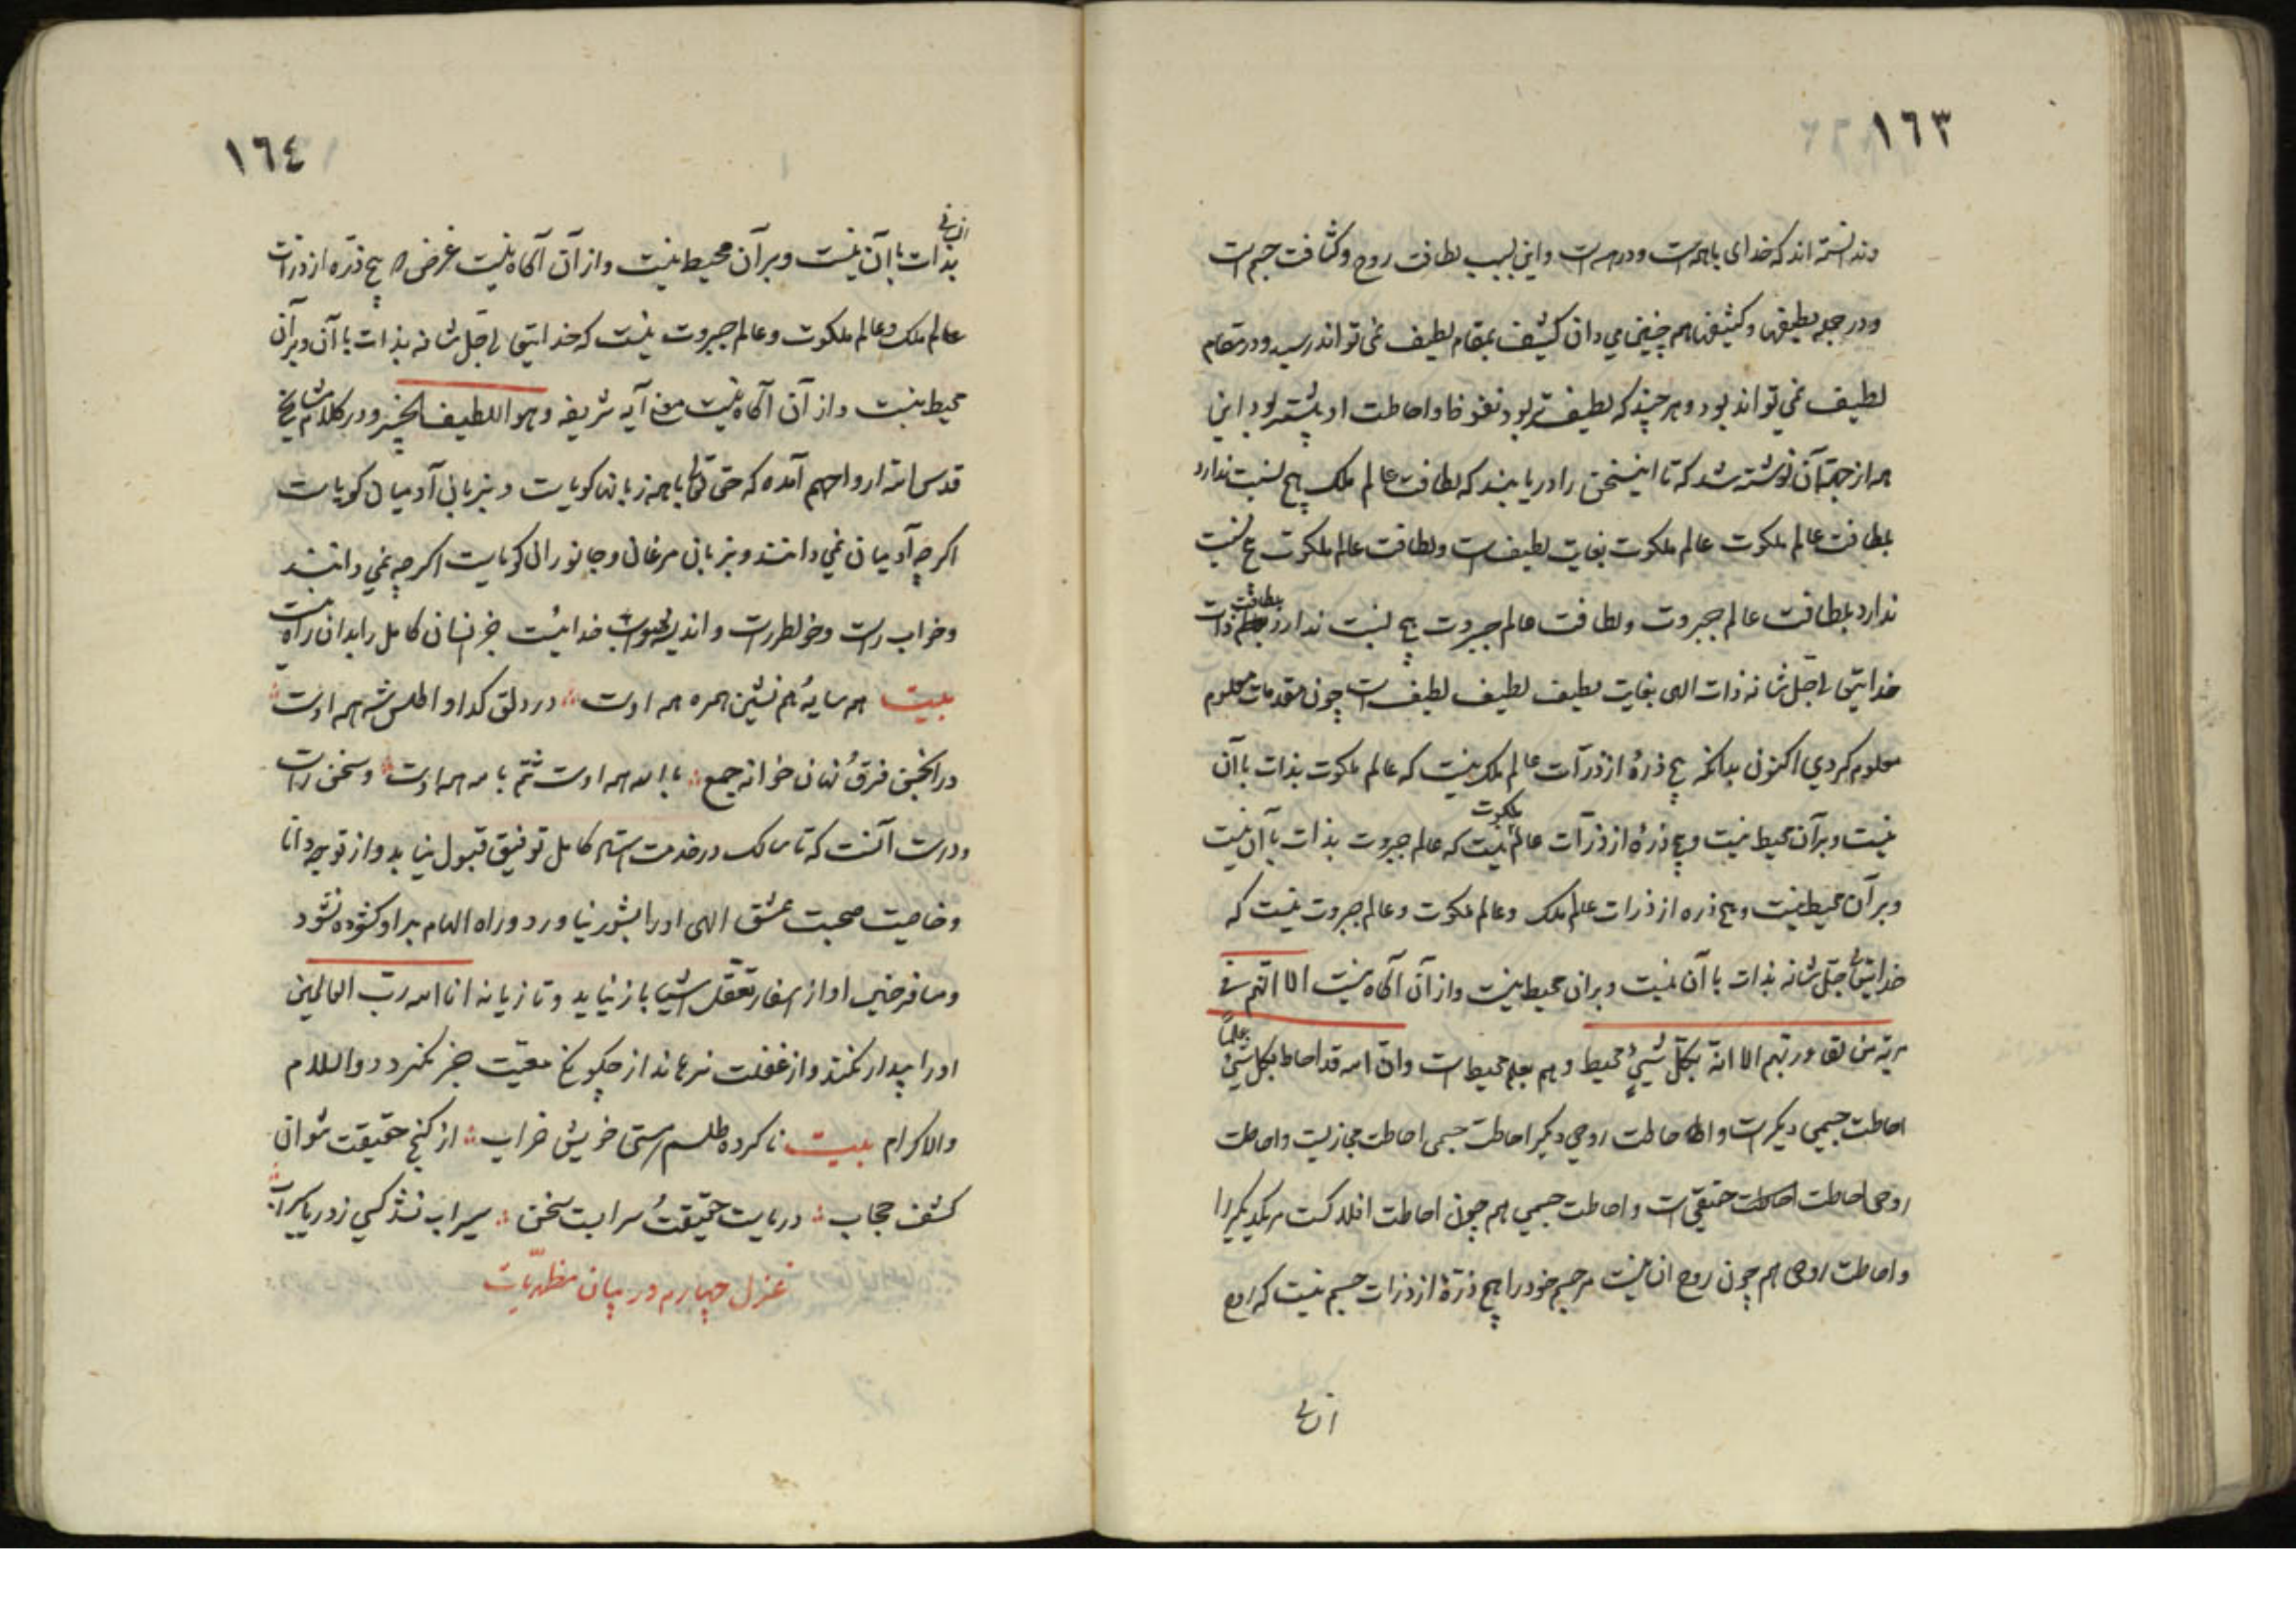 ١٦٣
وندانسته اند که خدای با همه است و در همه است و این بسبب لطافت روح و کثافت جسم است
و در جمله لطیفها و کثیفها هم چنین می دان کثیف بمقام لطیف نمی تواند رسید و در مقام
لطیف نمی تواند بود و هر چند که لطیف تر بود نفوذ او احاطت او بیشتر بود این
همه از جهت آن نوشته شد که تا این سخن را دریابند که لطافت عالم ملک هیچ نسبت ندارد
بلطافت عالم ملکوت عالم ملکوت بغایت لطیف است ولطافت عالم ملکوت هیچ نسبت
ندارد بلطافت عالم جبروت ولطافت عالم جبروت هیچ نسبت ندارد بلطافت ذات
خدایتعالی جل شانه ذات الهی بغایت لطیف لطیف لطیف است چون مقدمات معلوم
معلوم کردی اکنون بدانکه هیچ ذرهٔ از ذرات عالم ملک نیست که عالم ملکوت بذات با آن
نیست وبرآن محیط نیست وهیچ ذرهٔ از ذرات عالم ملکوت نیست که عالم جبروت بذات با آن نیست
وبرآن محیط نیست وهیچ ذره از ذرات عالم ملک وعالم ملکوت وعالم جبروت نیست که
خدایتعالی جل شانه بذات با آن نیست وبران محیط نیست واز آن آکاه نیست الا انهم فی
مریة من لقاء ربهم الا انه بکل شیءٍ محیط وهم بعلم محیط است وان الله قد احاط بکل شیء علماً
احاطت جسمی دیکر است و احاطت روحی دیکر احاطت جسمی احاطت مجازیست واحاطت
روحی احاطت حقیقی است واحاطت جسمی هم چون احاطت افلاکست مر یکدیکر را
واحاطت روحی هم چون روح انسانیست مر جسم خود را هیچ ذرهٔ از ذرات جسم نیست که روح
انسانی
١٦٤
انسانی
بذات با آن نیست وبرآن محیط نیست واز آن آکاه نیست غرض که هیچ ذره از ذرات
عالم ملک وعالم ملکوت وعالم جبروت نیست که خدایتعالی جل شانه بذات با آن وبرآن
محیط نیست واز آن آکاه نیست آیه شریفه وهو اللطیف الخبیر ودر کلام مشایخ
قدس الله ارواحهم آمده که حق تعالی با همه زبانها کویاست وبزبان آدمیان کویاست
اکرچه آدمیان نمی دانند وبزبان مرغان وجانوران کویاست اکرچه نمی دانند
وخواب راست وخواطر راست واندیشه خدائیست جز انسان کامل را بدان راه نیست
بیت همسایه و هم نشین و همره همه اوست ؞ در دلق کدا و اطلس شه همه اوست ؞
در انجمن فرق و نهان خانه جمع ؞ بالله همه اوست ثم بالله همه اوست ؞ وسخن راست
ودرست آنست که تا سالک در خدمت استاد کامل توفیق قبول نیابد واز توجه دانا
وخاصیت صحبت عشق الهی اورا بشور نیاورد وراه الهام بر او کشوده نشود
ومسافر او از اسفار تعقل اشیا باز نیاید وتازیانه انا الله رب العالمین
اورا بیدار نکند واز غفلت نرهاند از چکونکی معیت خبر نکردد والسلام
والاکرام بیت ناکرده طلسم هستی خویش خراب ؞ از کنج حقیقت نتوان
کشف حجاب ؞ دریاست حقیقت و سرابست سخن ؞ سیراب نشد کسی ز دریای سراب
غزل چهارم در بیان مظهریات